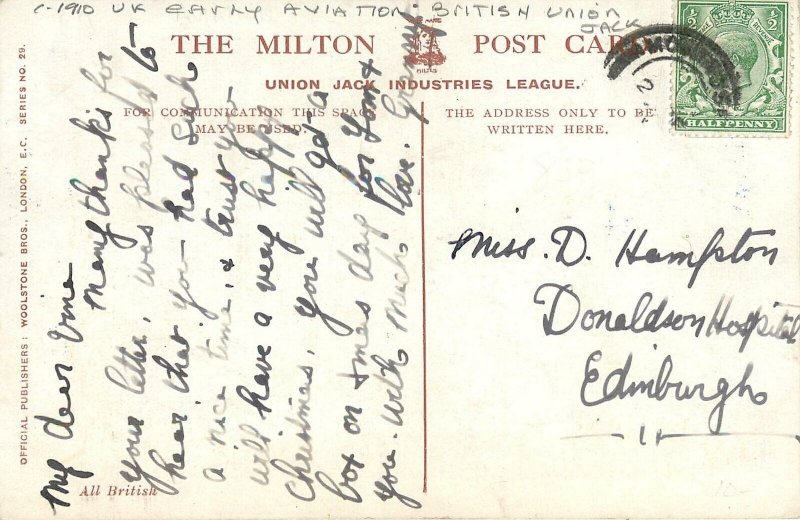 c-1910 UK EARLY AVIATION. BRITISH UNION
JACK
THE MILTON POST CARD
UNION JACK INDUSTRIES LEAGUE.
FOR COMMUNICATION THIS SPACE
MAY BE USED.
THE ADDRESS ONLY TO BE
WRITTEN HERE.
HALFPENNY
OFFICIAL PUBLISHERS: WOOLSTONE BROS., LONDON, E.C. SERIES NO. 29.
My dear
Many thanks for
your letter, was pleased to
hear that you had such
a nice time, & trust you
will have a very happy
Christmas. You will get a
box on Xmas day for you &
you. With much love.
All British
Miss. D. Hampton
Donaldson Hospital
Edinburgh